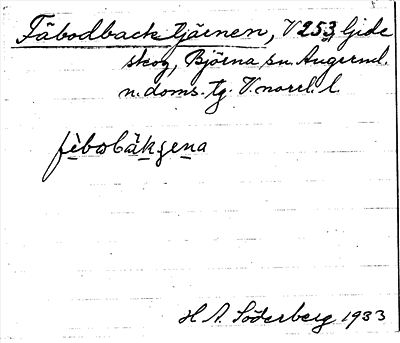 Fäbodbacktjärnen, V 253, Gide
skog, Björna sn. Ångerml.
n. doms. tg. V. norrl. l.
fèbωbàkʒena
H. A. Söderberg 1933